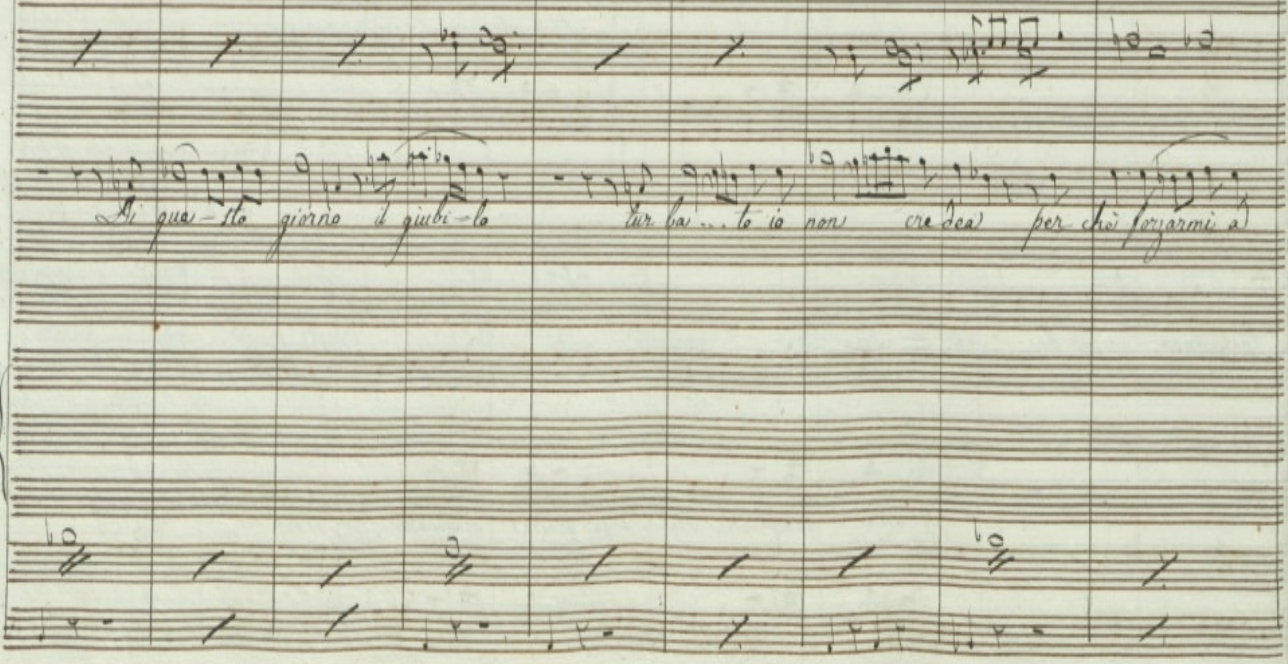 Di que-sto giorno il giubi-lo tur ba...to io non cre dea per chè forzarmi a